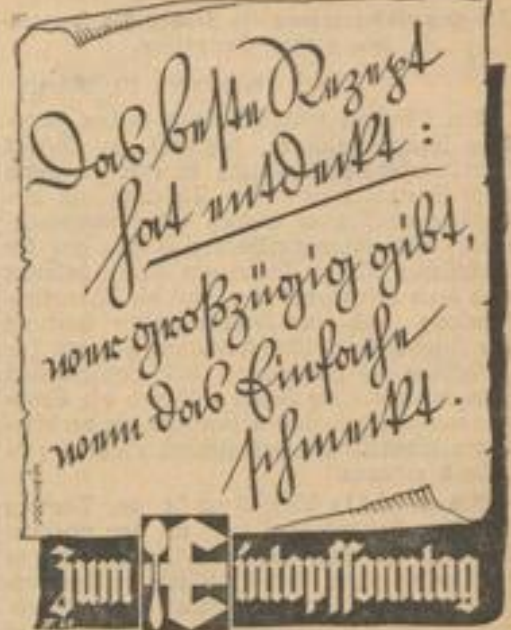 Das beste Rezept
hat entdeckt:
wer großzügig gibt,
wem das Einfache
schmeckt.
Zum Eintopfsonntag